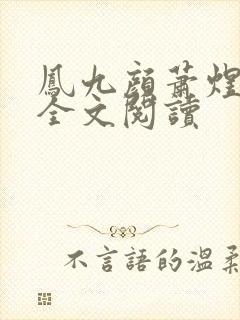 鳳九顏蕭煌
全文閱讀
不言語的溫柔